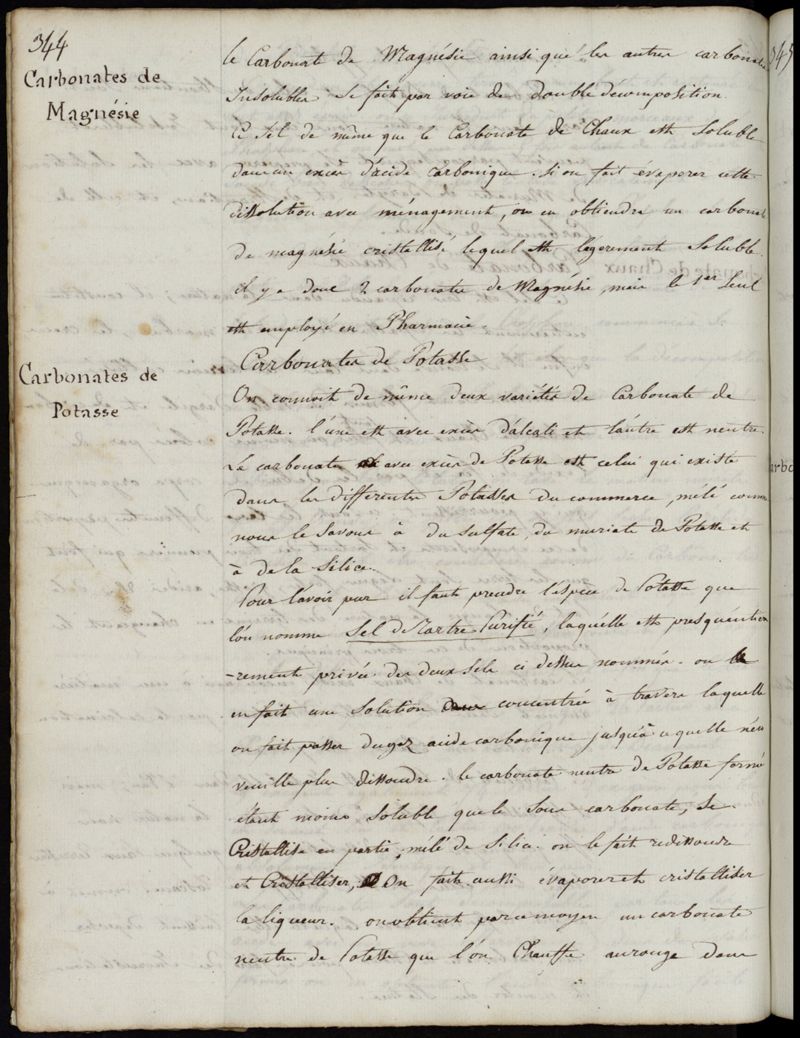 344
Carbonates de
Magnésie
le Carbonate de Magnésie ainsi que les autres carbonates
Insolubles se fait par voie de double décomposition
Ce sel de même que le Carbonate de Chaux est soluble
dans un excès d'acide carbonique. si on fait évaporer cette
dissolution avec ménagement, on en obtiendra un carbonate
de magnésie cristallisé lequel est légerement soluble.
il y a donc 2 carbonates de Magnésie, mais le 1er seul
est employé en Pharmacie.
Carbonates de
Potasse
Carbonates de Potasse
On connoit de même deux variétés de Carbonate de
Potasse. l'une est avec excès d'alcali et l'autre est neutre.
Le carbonate avec excès de Potasse est celui qui existe
dans les differentes Potasses du commerce, mêlé comme
nous le savons à du sulfate, du muriate de Potasse et
à de la silice.
Pour l'avoir pur il faut prendre l'espèce de Potasse que
l'on nomme Sel de Tartre Purifié, laquelle est presqu'entie
-rement privée des deux sels ci dessus nommés. on
en fait une solution concentrée à travers laquelle
on fait passer du gaz acide carbonique jusqu'à ce quelle n'en
veuille plus dissoudre. le carbonate neutre de Potasse formé
étant moins soluble que le sous carbonate, se
Cristallise en partie, mêlé de silice. on le fait redissoudre
et Cristalliser, On fait aussi évaporer et cristalliser
la liqueur. on obtient par ce moyen un carbonate
neutre de Potasse que l'on Chauffe au rouge dans